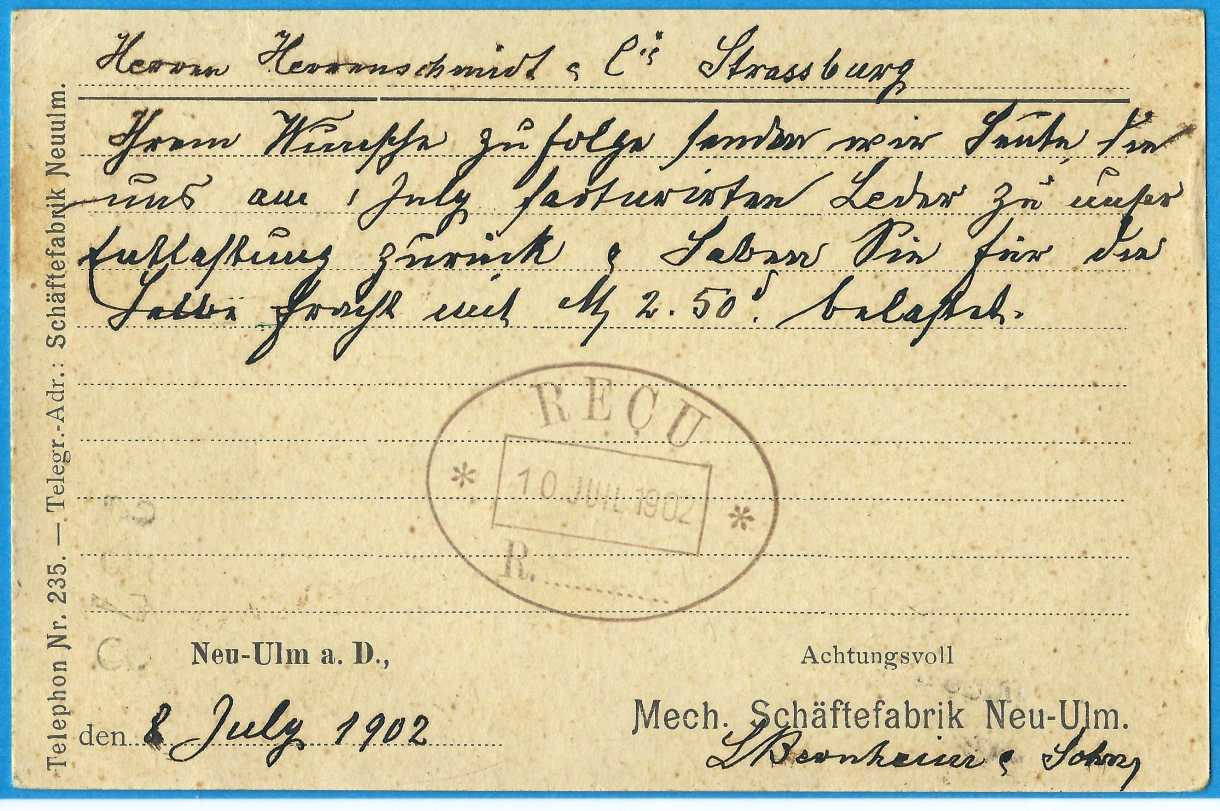 Herren Herrenschmidt & Cie Strassburg
Ihrem Wunsche zufolge senden wir heute die
uns am 1 July facturirten Leder zu unsrer
Entlastung zurück & haben Sie für die
halbe Fracht mit M 2.50 belastet.
REÇU
10 JUIL 1902
R.
Neu-Ulm a. D.,
den 8 July 1902
Achtungsvoll
Mech. Schäftefabrik Neu-Ulm.
L Bernheim & Sohn
Telephon Nr. 235. — Telegr.-Adr.: Schäftefabrik Neuulm.